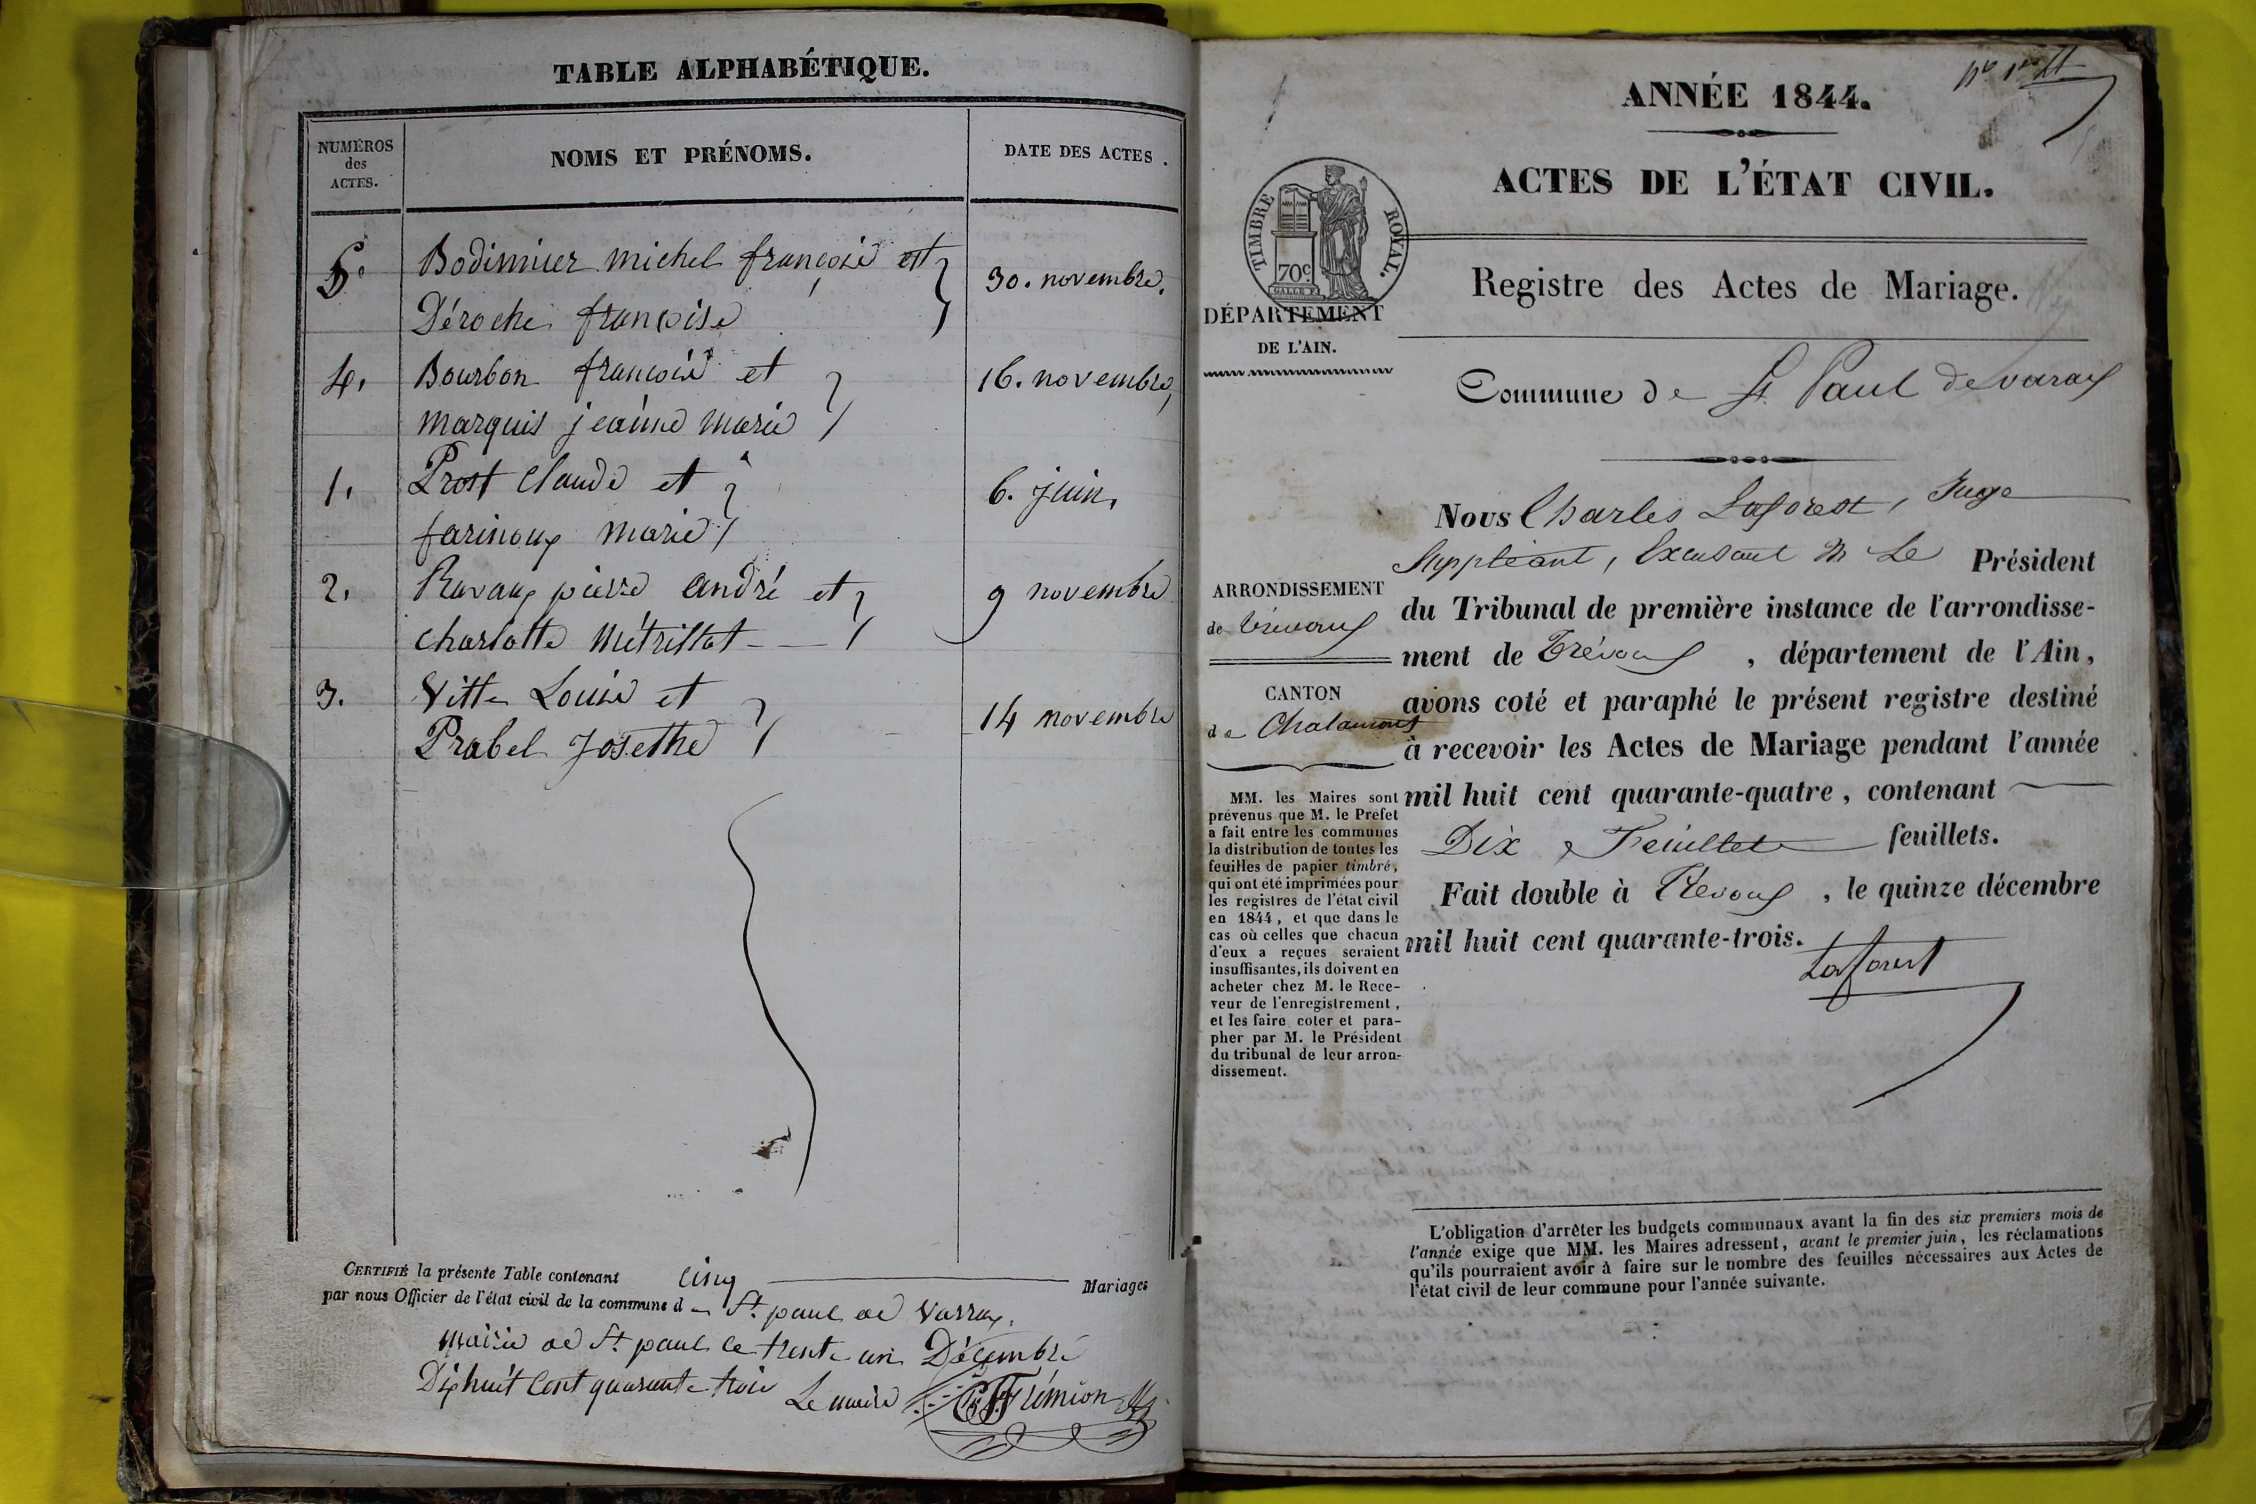 TABLE ALPHABÉTIQUE.
NUMÉROS
des
ACTES.
NOMS ET PRÉNOMS.
DATE DES ACTES.
5. Bodimier michel françois et
Déroche françoise
30. novembre.
4. Bourbon françois et
marquis jeanne marie
16. novembre,
1. Prost claude et
farinoux marie
6. juin,
2. Ravaux pierre andré et
charlotte Métrillot
9 novembre
3. Vitte Louis et
Prabel Josethe
14 novembre
CERTIFIÉ la présente Table contenant cinq Mariages
par nous Officier de l'état civil de la commune de St. paul de Varrax.
Mairie de St. paul le trente un Décembre
Dixhuit Cent quarante trois Le maire Frémion
ANNÉE 1844.
ACTES DE L'ÉTAT CIVIL.
TIMBRE ROYAL.
70c
Registre des Actes de Mariage.
DÉPARTEMENT
DE L'AIN.
Commune de St. Paul de varax
Nous Charles Laforest, Juge
Suppléant, Excusant M Le Président
ARRONDISSEMENT
de Trévoux
du Tribunal de première instance de l'arrondisse-
ment de Trévoux, département de l'Ain,
CANTON
de Chalamont
avons coté et paraphé le présent registre destiné
à recevoir les Actes de Mariage pendant l'année
mil huit cent quarante-quatre, contenant
Dix Feuillets feuillets.
Fait double à Trevoux, le quinze décembre
mil huit cent quarante-trois.
Laforest
MM. les Maires sont
prévenus que M. le Préfet
a fait entre les communes
la distribution de toutes les
feuilles de papier timbré,
qui ont été imprimées pour
les registres de l'état civil
en 1844, et que dans le
cas où celles que chacun
d'eux a reçues seraient
insuffisantes, ils doivent en
acheter chez M. le Rece-
veur de l'enregistrement,
et les faire coter et para-
pher par M. le Président
du tribunal de leur arron-
dissement.
L'obligation d'arrêter les budgets communaux avant la fin des six premiers mois de
l'année exige que MM. les Maires adressent, avant le premier juin, les réclamations
qu'ils pourraient avoir à faire sur le nombre des feuilles nécessaires aux Actes de
l'état civil de leur commune pour l'année suivante.